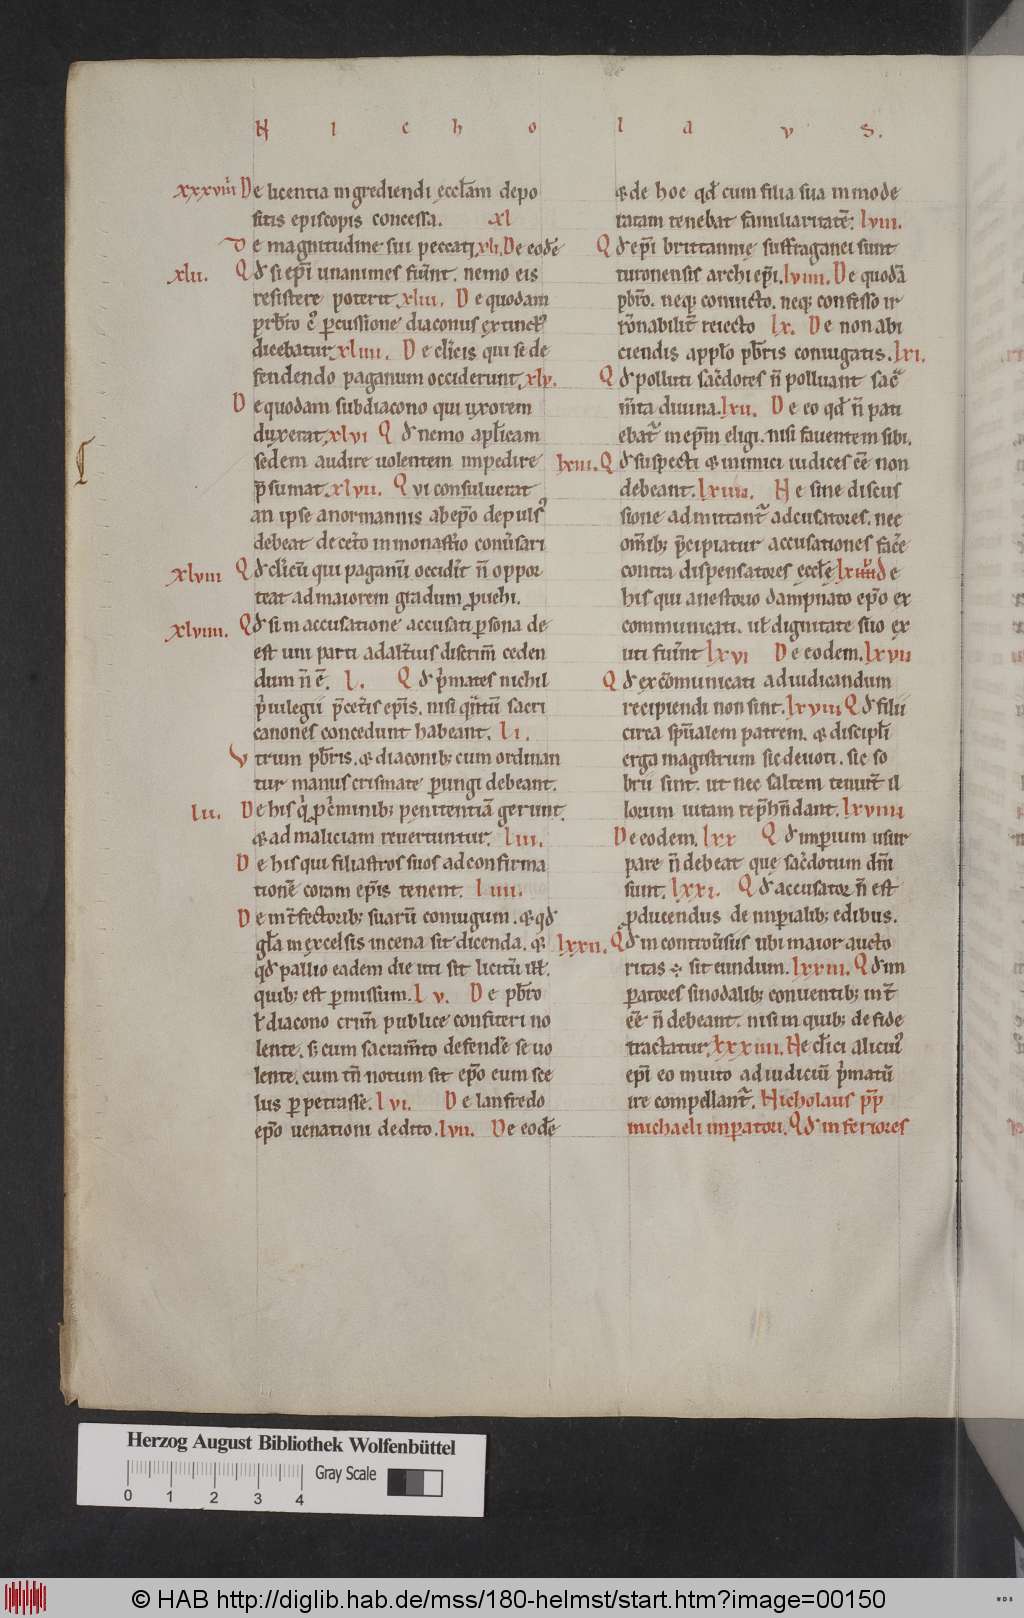 N i c h o l a v s.
xxxviiii De licentia ingrediendi eccl̄am depo
sitis episcopis concessa. xl
De magnitudine sui peccati. xli. De eodē
xlii. Qd̄ si ep̄i unanimes fuerint. nemo eis
resistere poterit. xliii. De quodam
prb̄ro cuius percussione diaconus extinctus
dicebatur. xliiii. De clericis qui se de
fendendo paganum occiderunt. xlv.
De quodam subdiacono qui uxorem
duxerat. xlvi Qd̄ nemo apl̄icam
sedem audire uolentem impedire
p̄sumat. xlvii. Qui consuluerat
an ipse a normannis ab ep̄o depulsus
debeat de cetero in monasterio conuersari
xlviii Qd̄ clericū qui paganū occiderit n̄ oppor
teat ad maiorem gradum prouehi.
xlviiii. Qd̄ si in accusatione accusati persona de
est uni parti ad alterius discrim̄ ceden
dum n̄ ē. l. Qd̄ primates nichil
priuilegii p̄ ceteris ep̄is. nisi quantū sacri
canones concedunt habeant. li.
Vtrum pb̄ris. & diaconib; cum ordinan
tur manus crismate perungi debeant.
lii. De his qui pro criminib; penitentiā gerunt.
& ad maliciam reuertuntur. liii.
De his qui filiastros suos ad confirma
tionē coram ep̄is tenent. liiii.
De interfectorib; suarū coniugum. & qd̄
gl̄a in excelsis in cena sit dicenda. &
qd̄ pallio eadem die uti sit licitū ill̄.
quib; est permissum. lv. De pb̄ro
ł diacono crim̄ publice confiteri no
lente. s; cum sacram̄to defendere se uo
lente. cum tn̄ notum sit ep̄o eum sce
lus perpetrasse. lvi. De lanfredo
ep̄o uenationi dedito. lvii. De eodē
& de hoc qd̄ cum filia sua inmode
ratam tenebat familiaritatē. lviii.
Qd̄ ep̄i brittannię suffraganei sunt
turonensis archiep̄i. lviiii. De quodā
pb̄ro. neq; conuicto. neq; confesso ir
rationabiliter reiecto lx. De non abi
ciendis appl̄o pb̄ris coniugatis. lxi.
Qd̄ polluti sacerdotes n̄ polluant sacra
m̄ta diuina. lxii. De eo qd̄ n̄ pati
ebatur in ep̄m eligi. nisi fauentem sibi.
lxiii. Qd̄ suspecti & inimici iudices eē non
debeant. lxiiii. Ne sine discus
sione admittantur adcusatores. nec
om̄ib; p̄cipiatur accusationes facere
contra dispensatores eccl̄ę. lxv De
his qui a nestorio dampnato ep̄o ex
communicati. uł dignitate suo ex
uti fuerint lxvi De eodem. lxvii
Qd̄ excōmunicati ad iudicandum
recipiendi non sint. lxviii Qd̄ filii
circa spiritualem patrem. & discipl̄i
erga magistrum sic deuoti. sic so
brii sint. ut nec saltem tenuiter il
lorum uitam rep̄hn̄dant. lxviiii
De eodem. lxx Qd̄ imperium usur
pare n̄ debeat que sacerdotum dn̄i
sunt. lxxi. Qd̄ accusator n̄ est
producendus de imperialib; edibus.
lxxii. Qd̄ in controuersiis ubi maior aucto
ritas ÷ sit eundum. lxxiii. Qd̄ im
peratores sinodalib; conuentib; int̄
eē n̄ debeant. nisi in quib; de fide
tractatur. lxxiiii. Ne clerici alicuius
ep̄i eo inuito ad iudiciū primatū
ire compellantur. Nicholaus pp̄
michaeli imperatori. Qd̄ inferiores
Herzog August Bibliothek Wolfenbüttel
Gray Scale
0 1 2 3 4
© HAB http://diglib.hab.de/mss/180-helmst/start.htm?image=00150